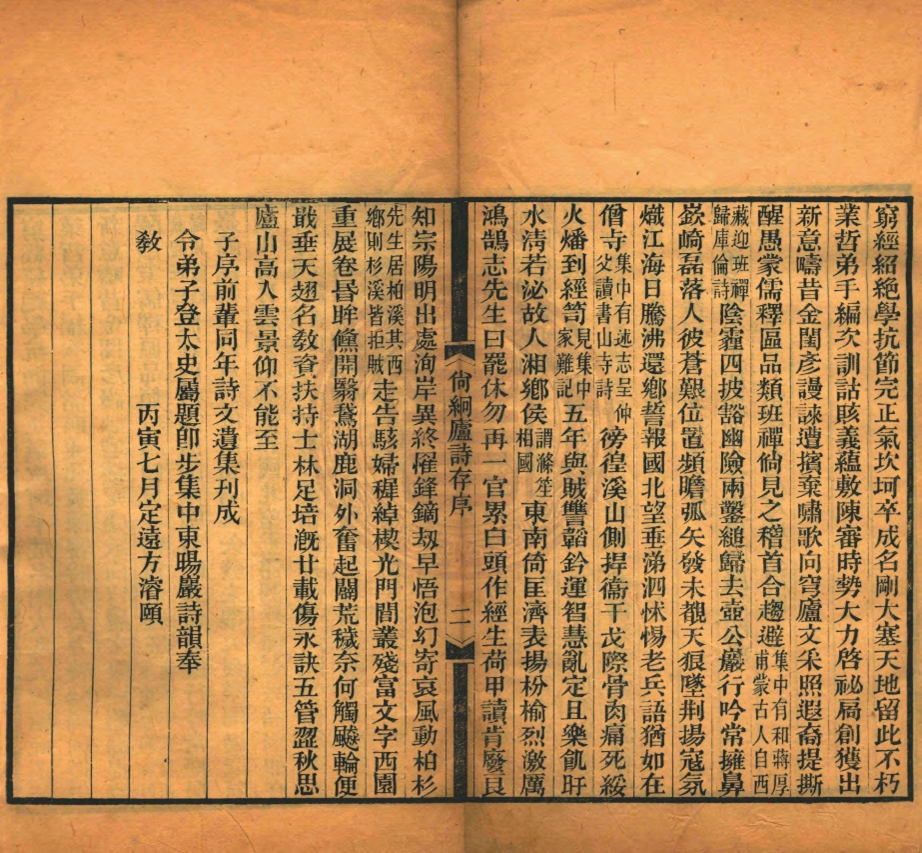 窮經紹絶學抗節完正氣坎坷卒成名剛大塞天地留此不朽
業哲弟手編次訓詁賅義蘊敷陳審時勢大力啓祕局創獲出
新意疇昔金閨彥謾諫遭擯棄嘯歌向穹廬文采照遐裔提撕
醒愚蒙儒釋區品類班禪倘見之稽首合趨避集中有和蔣厚甫蒙古人自西
藏迎班禪歸庫倫詩陰霾四披豁幽險兩鑿縋歸去壺公巖行吟常擁鼻
嶔崎磊落人彼蒼艱位置頻瞻弧矢發未覩天狼墜荆揚寇氛
熾江海日騰沸還鄉誓報國北望垂涕泗怵惕老兵語猶如在
僧寺集中有述志呈仲父讀書山寺詩徬徨溪山側捍衞干戈際骨肉痛死綏
火燔到經笥見集中家難記五年與賊讐韜鈐運智慧亂定且樂飢盱
水淸若泌故人湘鄉侯謂滌笙相國東南倚匡濟表揚枌榆烈激厲
鴻鵠志先生曰罷休勿再一官累白頭作經生荷甲讀肯廢良
尙絅廬詩存序　二
知宗陽明出處洵岸異終罹鋒鏑刼早悟泡幻寄哀風動柏杉
先生居柏溪其西鄉則杉溪皆拒賊走告駭婦穉綽楔光門閭叢殘富文字西園
重展卷昬眸儻開翳鵞湖鹿洞外奮起闢荒穢奈何觸颷輪便
戢垂天翅名敎資扶持士林足培漑廿載傷永訣五管澀秋思
廬山高入雲景仰不能至
子序前輩同年詩文遺集刊成
令弟子登太史屬題卽步集中東暘巖詩韻奉
敎
丙寅七月定遠方濬頤